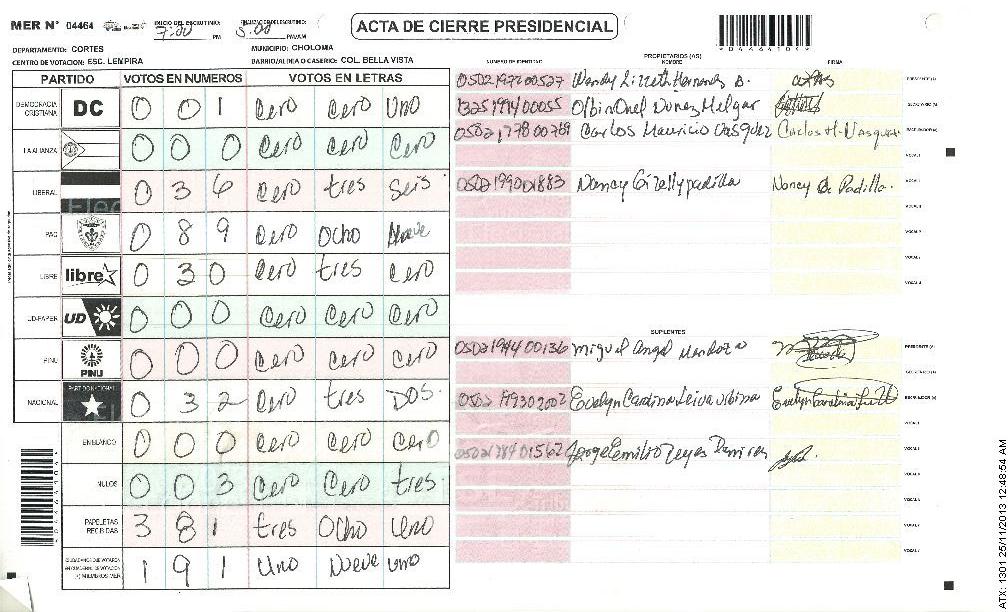 MER N° 04464 INICIO DEL ESCRUTINIO: 7:00 PM FINALIZACION DEL ESCRUTINIO: 5:00 PM/AM
ACTA DE CIERRE PRESIDENCIAL
DEPARTAMENTO: CORTES MUNICIPIO: CHOLOMA
CENTRO DE VOTACION: ESC. LEMPIRA BARRIO/ALDEA O CASERIO: COL. BELLA VISTA
PARTIDO VOTOS EN NUMEROS VOTOS EN LETRAS
DEMOCRACIA CRISTIANA DC 0 0 1 Cero Cero Uno
LA ALIANZA 0 0 0 Cero Cero Cero
LIBERAL 0 3 6 Cero tres Seis
PAC 0 8 9 Cero Ocho Nueve
LIBRE libre 0 3 0 Cero tres Cero
UD-FAPER UD 0 0 0 Cero Cero Cero
PINU PINU 0 0 0 Cero Cero Cero
NACIONAL PARTIDO NACIONAL 0 3 2 Cero tres DOS.
EN BLANCO 0 0 0 Cero Cero Cero
NULOS 0 0 3 Cero Cero tres
PAPELETAS RECIBIDAS 3 8 1 tres Ocho Uno
CIUDADANOS QUE VOTARON EN CUADERNO DE VOTACION (+) MIEMBROS MER 1 9 1 Uno Nueve Uno
PROPIETARIOS (AS)
NUMERO DE IDENTIDAD NOMBRE FIRMA
0502197200527 Wendy Lizeth B. PRESIDENTE (A)
1325199400055 Olbin Onel Nunez Melgar SECRETARIO (A)
Carlos Mauricio Vasquez Carlos M. Vasquez ESCRUTADOR (A)
VOCAL 1
0502199001883 Nancy Gizelly padilla Nancy G. Padilla.
SUPLENTES
miguel Angel Mendoza PRESIDENTE (A)
SECRETARIO (A)
Evelyn Carolina Leiva Urbina Evelyn Carolina ESCRUTADOR (A)
Jorge Emilio Reyes Ramirez
ATX: 1301 25/11/2013 12:48:54 AM